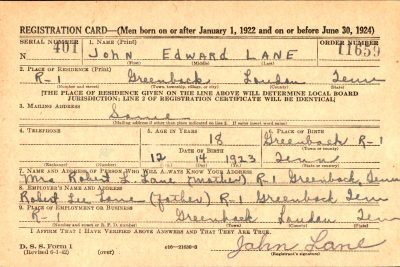 REGISTRATION CARD—(Men born on or after January 1, 1922 and on or before June 30, 1924)
SERIAL NUMBER 1. NAME (Print) ORDER NUMBER
N 401 John Edward LANE 11659
(First) (Middle) (Last)
2. PLACE OF RESIDENCE (Print)
R-1 Greenback Loudon Tenn
(Number and street) (Town, township, village, or city) (County) (State)
[THE PLACE OF RESIDENCE GIVEN ON THE LINE ABOVE WILL DETERMINE LOCAL BOARD
JURISDICTION; LINE 2 OF REGISTRATION CERTIFICATE WILL BE IDENTICAL]
3. MAILING ADDRESS
Same
(Mailing address if other than place indicated on line 2. If same insert word same)
4. TELEPHONE 5. AGE IN YEARS 6. PLACE OF BIRTH
18 Greenback R-1
DATE OF BIRTH (Town or county)
12 14 1923 Tenn
(Exchange) (Number) (Mo.) (Day) (Yr.) (State or country)
7. NAME AND ADDRESS OF PERSON WHO WILL ALWAYS KNOW YOUR ADDRESS
Mrs Robert L. Lane (mother) R-1 Greenback, Tenn
8. EMPLOYER'S NAME AND ADDRESS
Robert Lee Lane (father) R-1 Greenback Tenn
9. PLACE OF EMPLOYMENT OR BUSINESS
R-1 Greenback Loudon Tenn
(Number and street or R. F. D. number) (Town) (County) (State)
I AFFIRM THAT I HAVE VERIFIED ABOVE ANSWERS AND THAT THEY ARE TRUE.
D. S. S. Form 1
(Revised 6-1-42) (over) 16—21630-2 John Lane
(Registrant's signature)